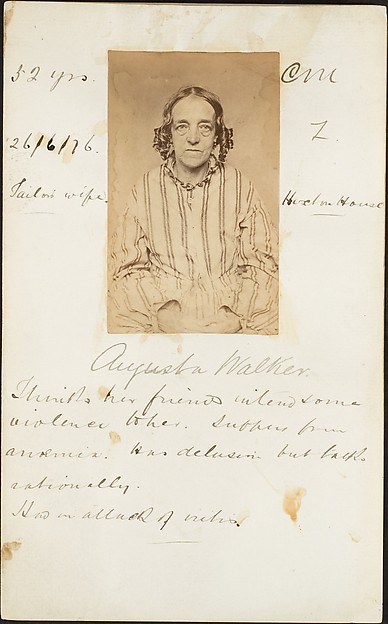 52 yrs.
CM
26/6/76.
Z
Tailor's wife.
House
Augusta Walker.
Thinks her friends intend some
violence to her. Suffers from
anaemia. Has delusion but talks
rationally.
Has an attack of